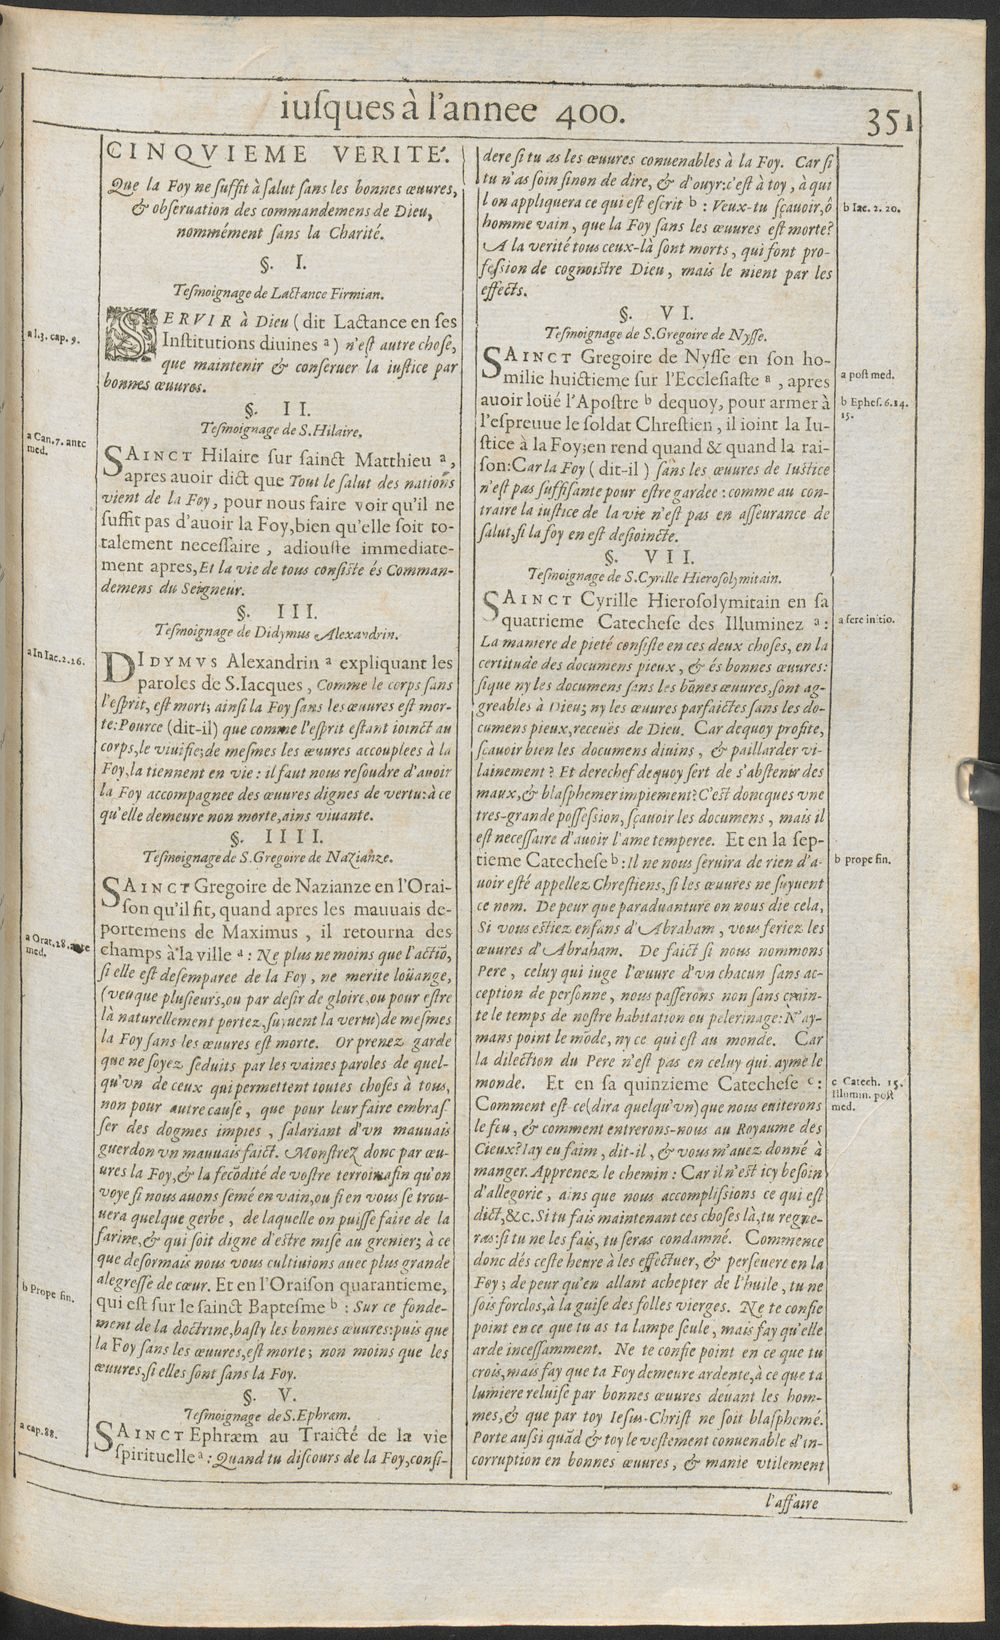 iuſques à l'annee 400.
351
CINQVIEME VERITE'.
Que la Foy ne ſuffit à ſalut ſans les bonnes œuures,
& obſeruation des commandemens de Dieu,
nommément ſans la Charité.
§. I.
Teſmoignage de Lactance Firmian.
SERVIR à Dieu (dit Lactance en ſes
Inſtitutions diuines a) n'eſt autre choſe,
que maintenir & conſeruer la iuſtice par
bonnes œuures.
a l.3. cap. 9.
§. II.
Teſmoignage de S. Hilaire.
SAINCT Hilaire ſur ſainct Matthieu a,
apres auoir dict que Tout le ſalut des nations
vient de la Foy, pour nous faire voir qu'il ne
ſuffit pas d'auoir la Foy, bien qu'elle ſoit to-
talement neceſſaire, adiouſte immediate-
ment apres, Et la vie de tous conſiſte és Comman-
demens du Seigneur.
a Can. 7. ante
med.
§. III.
Teſmoignage de Didymus Alexandrin.
DIDYMVS Alexandrin a expliquant les
paroles de S. Iacques, Comme le corps ſans
l'eſprit, eſt mort; ainſi la Foy ſans les œuures eſt mor-
te: Pource (dit-il) que comme l'eſprit eſtant ioinct au
corps, le viuifie; de meſmes les œuures accouplees à la
Foy, la tiennent en vie: il faut nous reſoudre d'auoir
la Foy accompagnee des œuures dignes de vertu: à ce
qu'elle demeure non morte, ains viuante.
a In Iac. 2. 26.
§. IIII.
Teſmoignage de S. Gregoire de Nazianze.
SAINCT Gregoire de Nazianze en l'Orai-
ſon qu'il fit, quand apres les mauuais de-
portemens de Maximus, il retourna des
champs à la ville a: Ne plus ne moins que l'actiõ,
ſi elle eſt deſemparee de la Foy, ne merite loüange,
(veu que pluſieurs, ou par deſir de gloire, ou pour eſtre
là naturellement portez, ſuyuent la vertu) de meſmes
la Foy ſans les œuures eſt morte. Or prenez garde
que ne ſoyez ſeduits par les vaines paroles de quel-
qu'vn de ceux qui permettent toutes choſes à tous,
non pour autre cauſe, que pour leur faire embraſ-
ſer des dogmes impies, ſalariant d'vn mauuais
guerdon vn mauuais faict. Monſtrez donc par œu-
ures la Foy, & la fecõdité de voſtre terroir: afin qu'on
voye ſi nous auons ſemé en vain, ou ſi en vous ſe trou-
uera quelque gerbe, de laquelle on puiſſe faire de la
farine, & qui ſoit digne d'eſtre miſe au grenier; à ce
que deſormais nous vous cultiuions auec plus grande
alegreſſe de cœur. Et en l'Oraiſon quarantieme,
qui eſt ſur le ſainct Bapteſme b: Sur ce fonde-
ment de la doctrine, baſty les bonnes œuures: puis que
la Foy ſans les œuures, eſt morte; non moins que les
œuures, ſi elles ſont ſans la Foy.
a Orat. 28. ante
med.
b Prope fin.
§. V.
Teſmoignage de S. Ephræm.
SAINCT Ephræm au Traicté de la vie
ſpirituelle a: Quand tu diſcours de la Foy, conſi-
a cap. 88.
dere ſi tu as les œuures conuenables à la Foy. Car ſi
tu n'as ſoin ſinon de dire, & d'ouyr: c'eſt à toy, à qui
l'on appliquera ce qui eſt eſcrit b: Veux-tu ſçauoir, ô
homme vain, que la Foy ſans les œuures eſt morte?
A la verité tous ceux-là ſont morts, qui font pro-
feſsion de cognoiſtre Dieu, mais le nient par les
effects.
b Iac. 2. 20.
§. VI.
Teſmoignage de S. Gregoire de Nyſſe.
SAINCT Gregoire de Nyſſe en ſon ho-
milie huictieme ſur l'Eccleſiaſte a, apres
auoir loüé l'Apoſtre b dequoy, pour armer à
l'eſpreuue le ſoldat Chreſtien, il ioint la Iu-
ſtice à la Foy; en rend quand & quand la rai-
ſon: Car la Foy (dit-il) ſans les œuures de Iuſtice
n'eſt pas ſuffiſante pour eſtre gardee: comme au con-
traire la iuſtice de la vie n'eſt pas en aſſeurance de
ſalut, ſi la foy en eſt deſioincte.
a poſt med.
b Epheſ. 6. 14.
15.
§. VII.
Teſmoignage de S. Cyrille Hieroſolymitain.
SAINCT Cyrille Hieroſolymitain en ſa
quatrieme Catecheſe des Illuminez a:
La maniere de pieté conſiſte en ces deux choſes, en la
certitude des documens pieux, & és bonnes œuures:
ſique ny les documens ſans les bõnes œuures, ſont ag-
greables à Dieu; ny les œuures parfaictes ſans les do-
cumens pieux, receuës de Dieu. Car dequoy profite,
ſçauoir bien les documens diuins, & paillarder vi-
lainement? Et derechef dequoy ſert de s'abſtenir des
maux, & blaſphemer impiement? C'eſt doncques vne
tres-grande poſſeſsion, ſçauoir les documens, mais il
eſt neceſſaire d'auoir l'ame temperee. Et en la ſep-
tieme Catecheſe b: Il ne nous ſeruira de rien d'a-
uoir eſté appellez Chreſtiens, ſi les œuures ne ſuyuent
ce nom. De peur que paraduanture on nous die cela,
Si vous eſtiez enfans d'Abraham, vous feriez les
œuures d'Abraham. De faict ſi nous nommons
Pere, celuy qui iuge l'œuure d'vn chacun ſans ac-
ception de perſonne, nous paſſerons non ſans crain-
te le temps de noſtre habitation ou pelerinage: N'ay-
mans point le mõde, ny ce qui eſt au monde. Car
la dilection du Pere n'eſt pas en celuy qui ayme le
monde. Et en ſa quinzieme Catecheſe c:
Comment eſt-ce (dira quelqu'vn) que nous euiterons
le feu, & comment entrerons-nous au Royaume des
Cieux? I'ay eu faim, dit-il, & vous m'auez donné à
manger. Apprenez le chemin: Car il n'eſt icy beſoin
d'allegorie, ains que nous accompliſsions ce qui eſt
dict, &c. Si tu fais maintenant ces choſes là, tu regne-
ras: ſi tu ne les fais, tu ſeras condamné. Commence
donc dés ceſte heure à les effectuer, & perſeuere en la
Foy; de peur qu'en allant achepter de l'huile, tu ne
ſois forclos, à la guiſe des folles vierges. Ne te confie
point en ce que tu as ta lampe ſeule, mais fay qu'elle
arde inceſſamment. Ne te confie point en ce que tu
crois, mais fay que ta Foy demeure ardente, à ce que ta
lumiere reluiſe par bonnes œuures deuant les hom-
mes, & que par toy Ieſus-Chriſt ne ſoit blaſphemé.
Porte auſsi quãd & toy le veſtement conuenable d'in-
corruption en bonnes œuures, & manie vtilement
a fere initio.
b prope fin.
c Catech. 15.
Illumin. poſt
med.
l'affaire